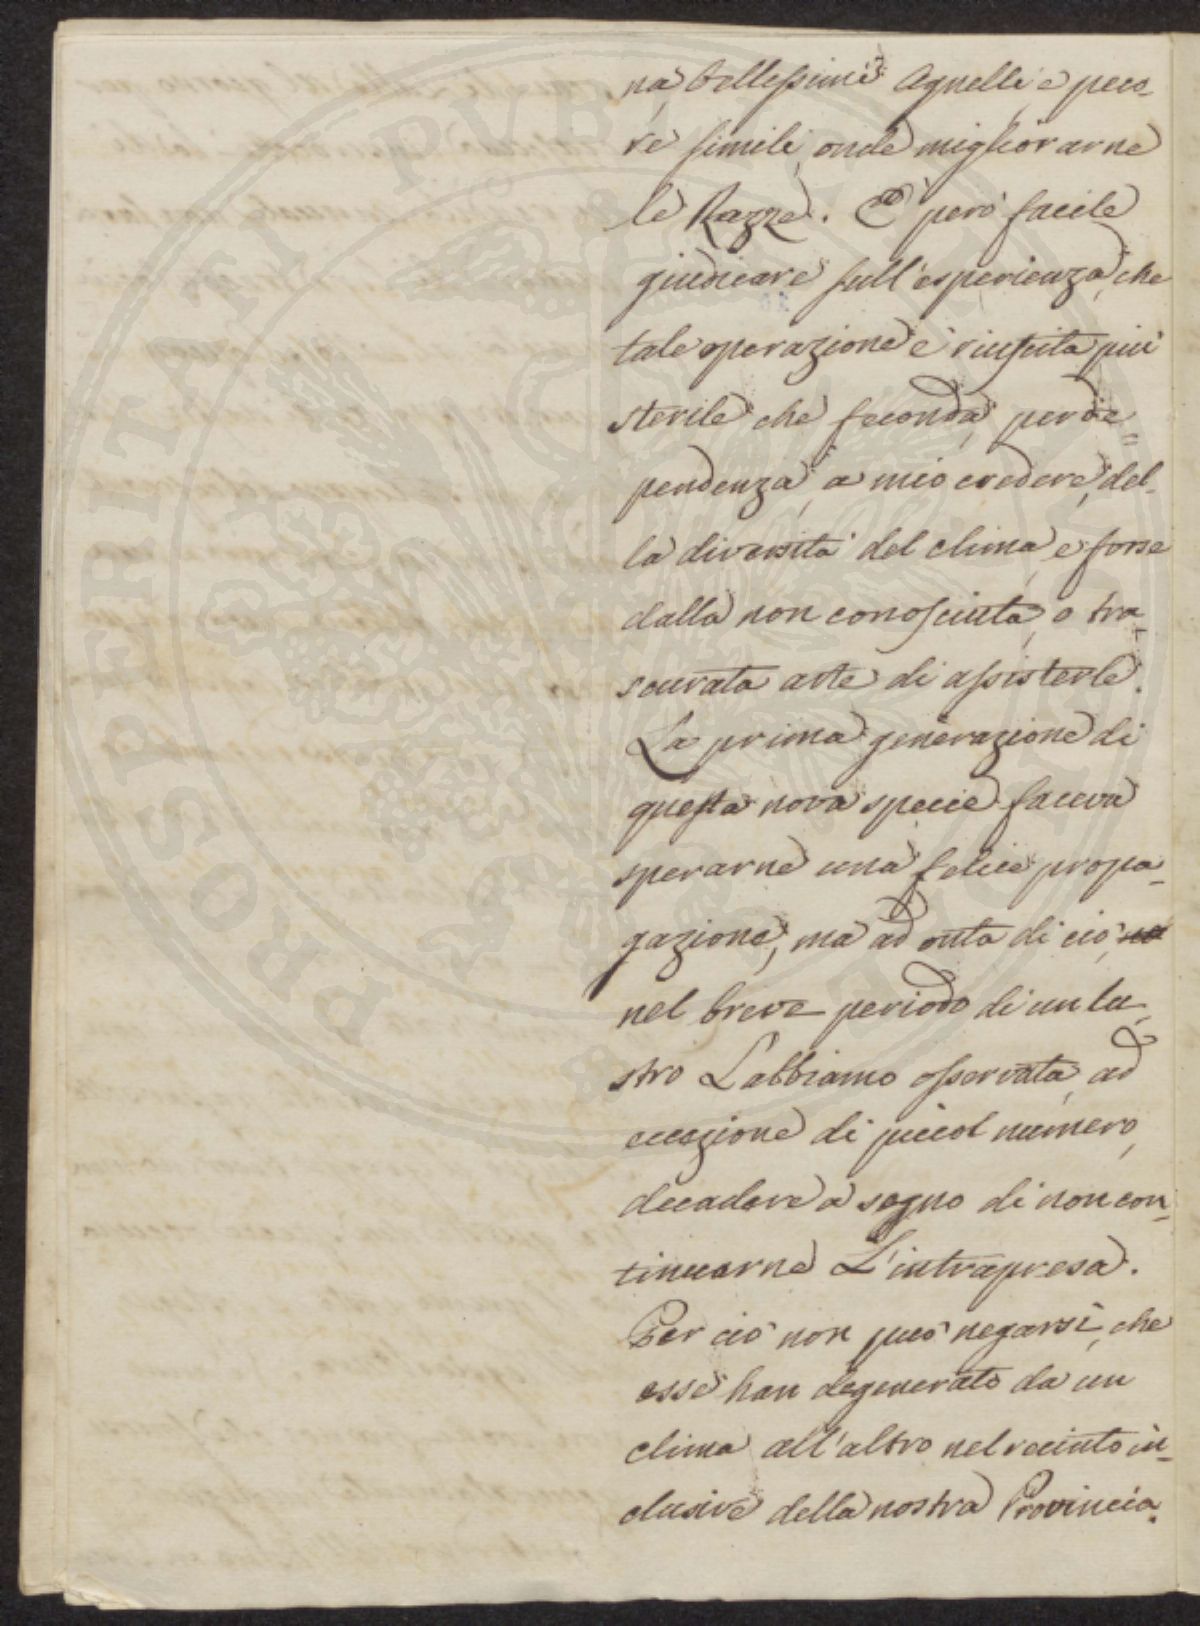 na, bellessimi Agnelli, e peco-
re simili, onde migliorarne
le Razze. È però facile
giudicare sull'esperienza, che
tale operazione è riuscita più
sterile che feconda, per di=
pendenza, a mio credere, del-
la diversità del clima, e forse
dalla non conosciuta, o tra-
scurata arte di assisterle.
La prima generazione di
questa nova specie faceva
sperarne una felice propa-
gazione, ma ad onta di ciò,
nel breve periodo di un lu-
stro L'abbiamo osservata, ad
eccezione di piccol numero,
decadere a segno di non con-
tinuarne L'intrapresa.
Per ciò non può negarsi, che
esse han degenerato da un
clima all'altro nel recinto in-
clusive della nostra Provincia.
PROSPERITATI PUBLICAE